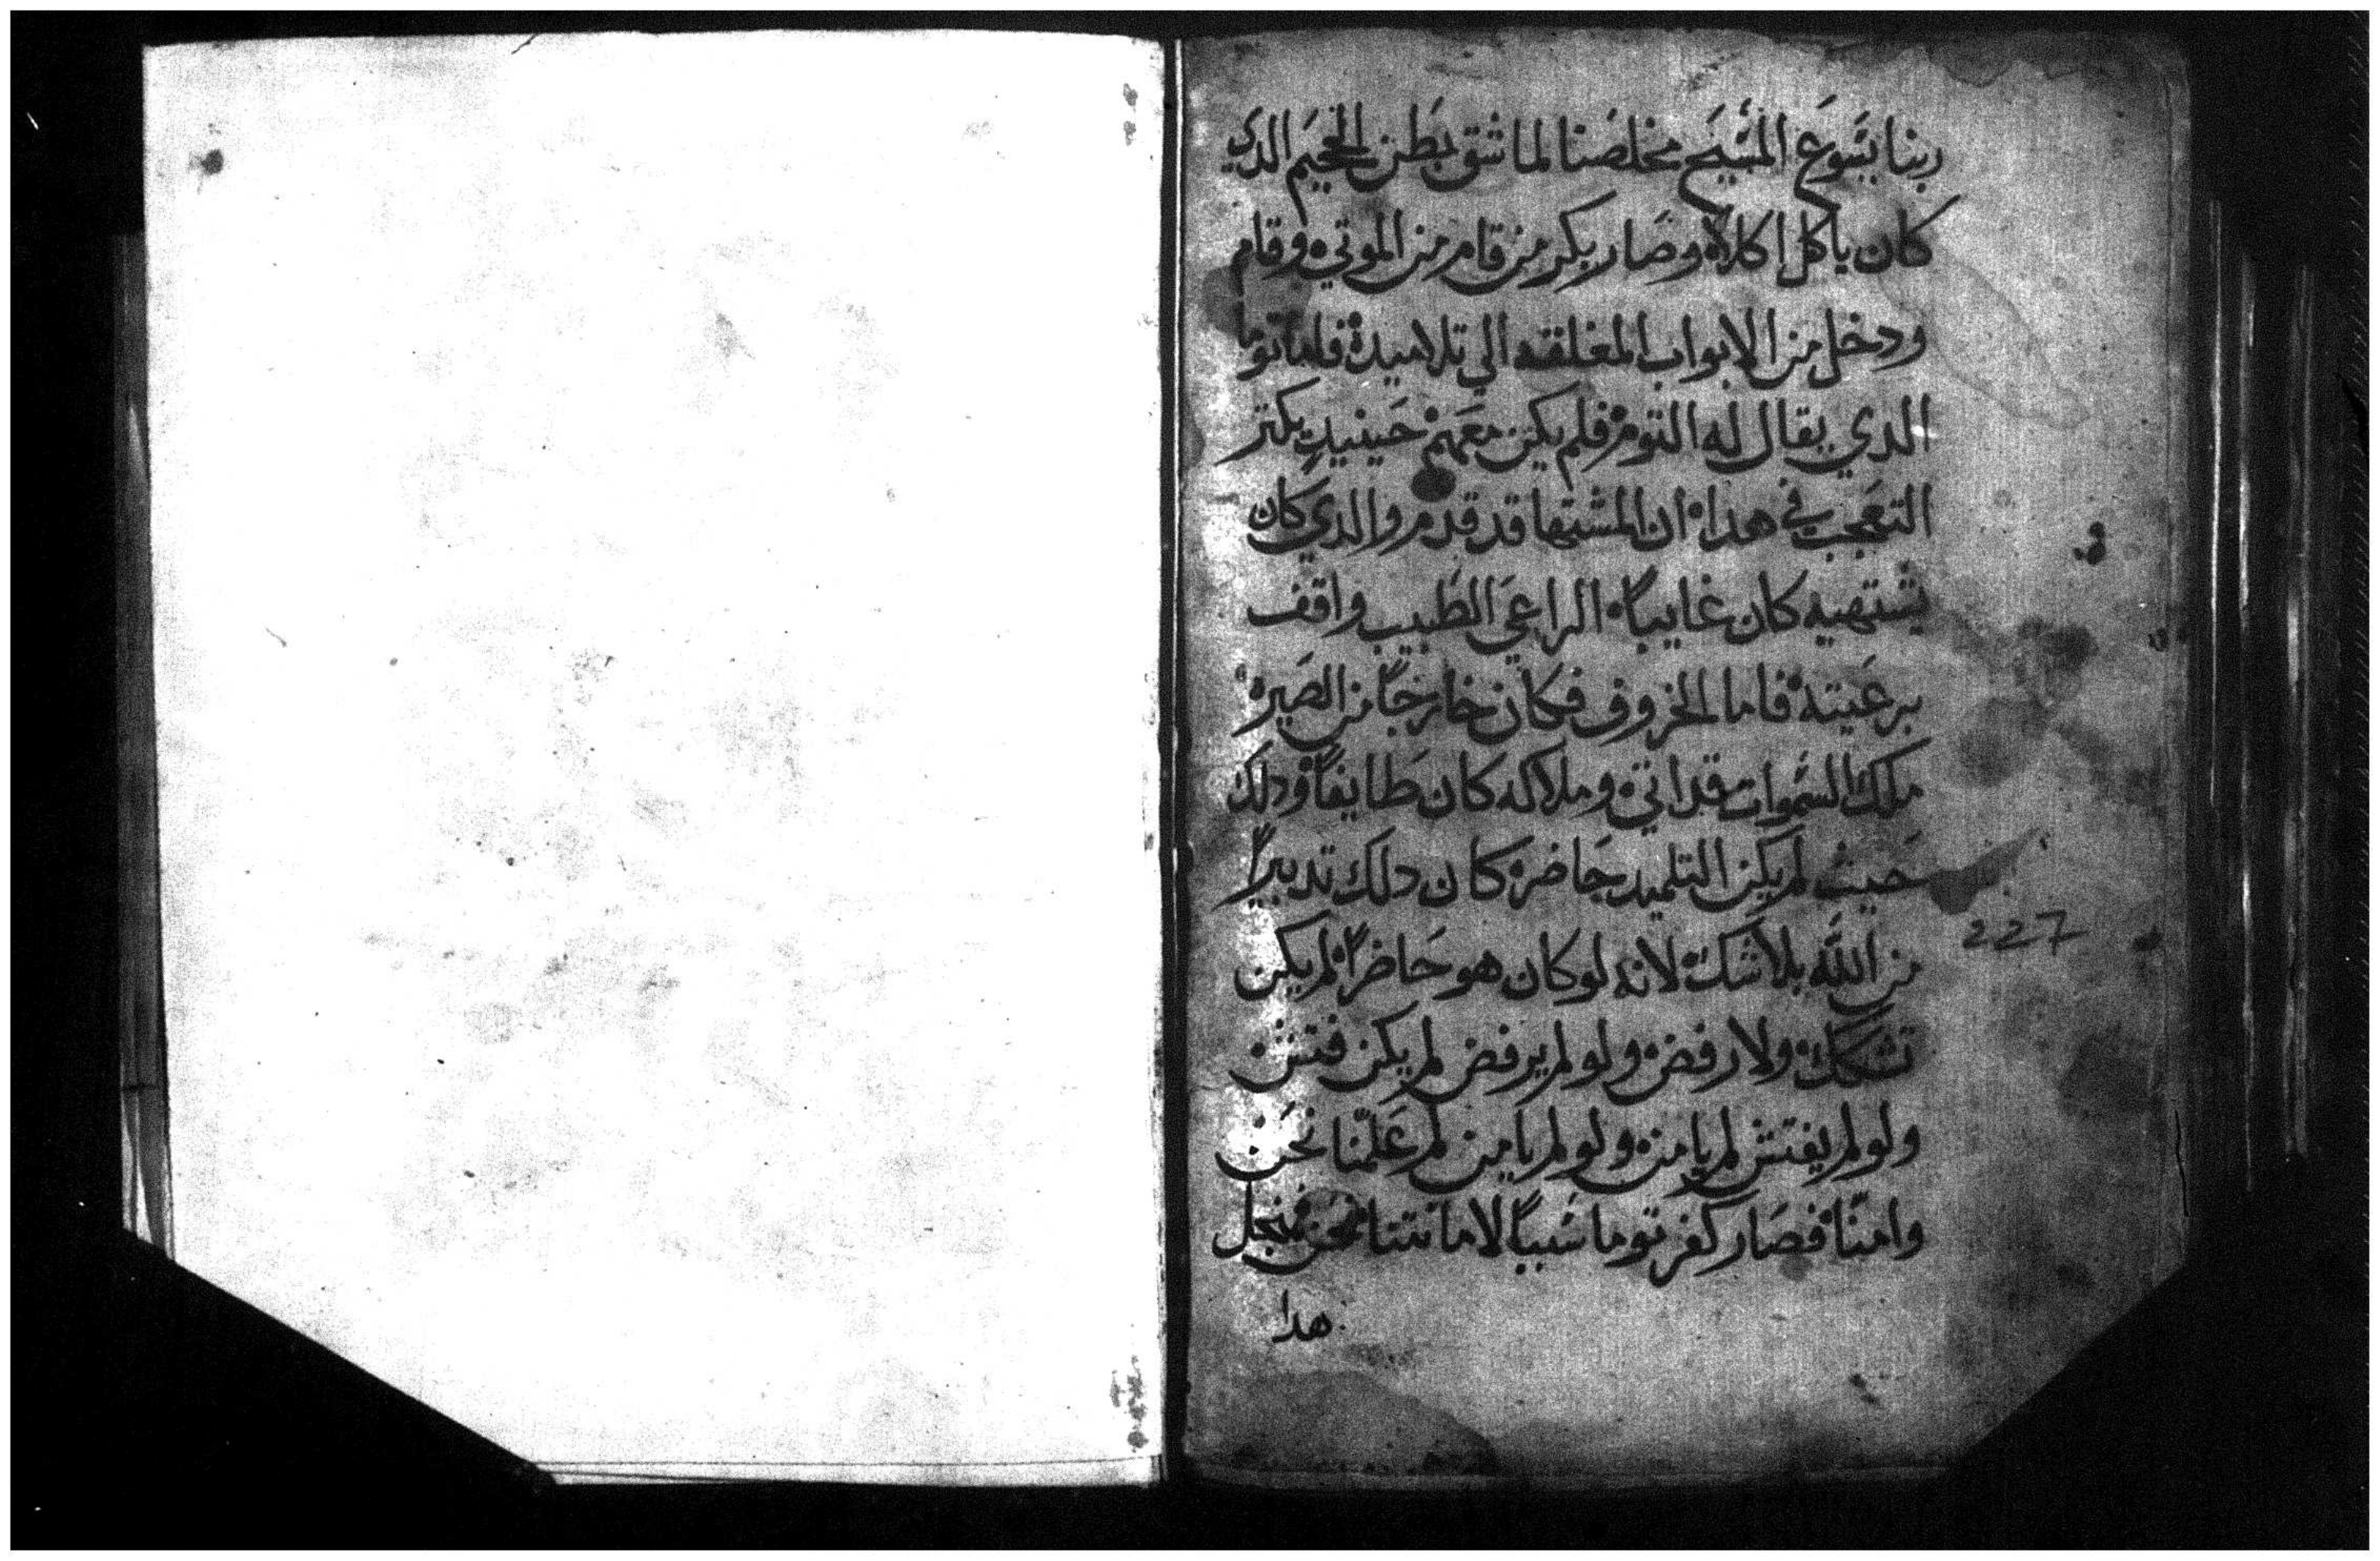 ربنا يسوع المسيح مخلصنا لما شق بطن الجحيم الدي
كان ياكل اكلاه وصار بكر من قام من الموتي وقام
ودخل من الابواب المغلقه الي تلاميده فاما توما
الدي يقال له التوم فلم يكن معهم حينيد يكتر
التعجب في هدا ان المشتها قد قدم والدي كان
يشتهيه كان غايبا الراعي الطبيب واقف
برعيته فاما الخروف فكان خارجا من الصيره
ملك السموات قد اتي وملاكه كان طايفا ودلك
حيث لم يكن التلميد حاضره كان دلك تدبيرا
من الله بلا شك لانه لو كان هو حاضرا لم يكن
تشكك ولا رفض ولو لم يرفض لم يكن فتش
227
ولو لم يفتش لم يامن ولو لم يامن لم علمنا نحن
وامنا فصار كفر توما سببا لامانتنا نحن فمنجل
هدا